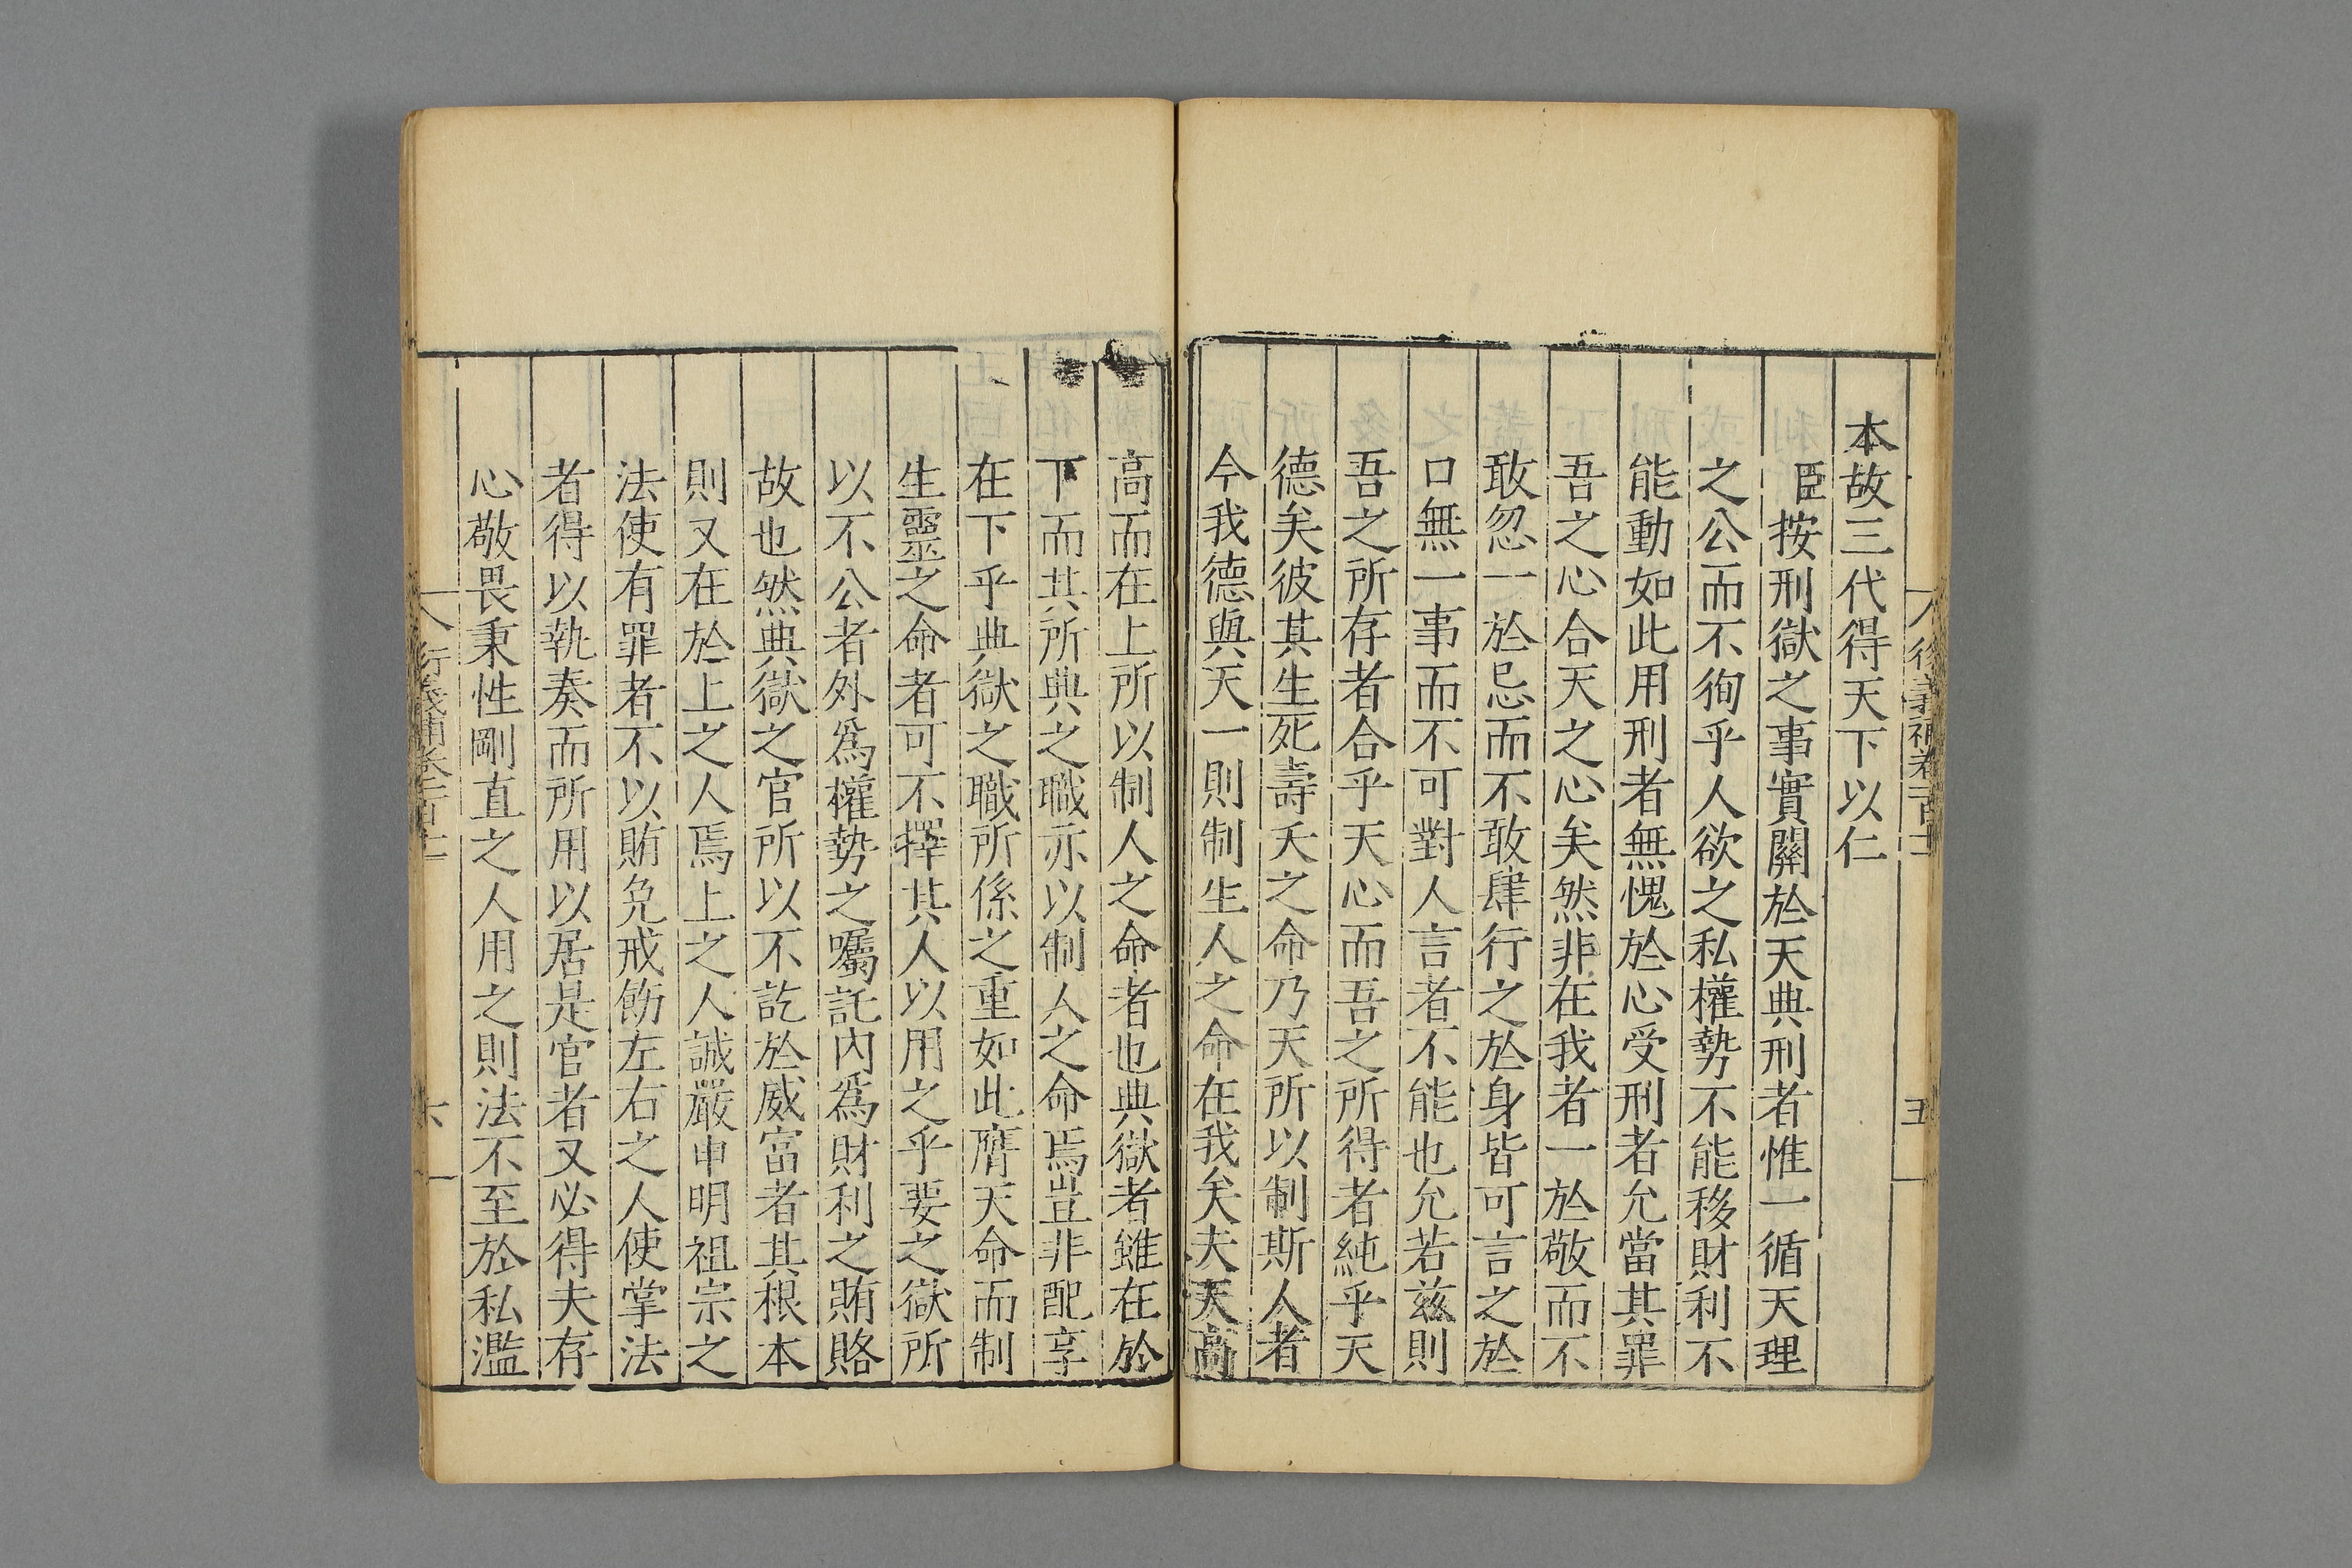 本故三代得天下以仁
臣按刑獄之事實關於天典刑者惟一循天理
之公而不徇乎人欲之私權勢不能移財利不
能動如此用刑者無愧於心受刑者允當其罪
吾之心合天之心矣然非在我者一於敬而不
敢忽一於忌而不敢肆行之於身皆可言之於
口無一事而不可對人言者不能也允若茲則
吾之所存者合乎天心而吾之所得者純乎天
德矣彼其生死壽夭之命乃天所以制斯人者
今我德與天一則制生人之命在我矣夫天高
高而在上所以制人之命者也典獄者雖在於
下而其所典之職亦以制人之命焉豈非配享
在下乎典獄之職所係之重如此膺天命而制
生靈之命者可不擇其人以用之乎要之獄所
以不公者外爲權勢之囑託內爲財利之賄賂
故也然典獄之官所以不訖於威富者其根本
則又在於上之人焉上之人誠嚴申明祖宗之
法使有罪者不以賄免戒飭左右之人使掌法
者得以執奏而所用以居是官者又必得夫存
心敬畏秉性剛直之人用之則法不至於私濫
五
六